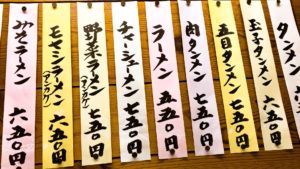 タンメン
玉子タンメン
五目タンメン 七五〇円
肉タンメン 七五〇円
ラーメン 五五〇円
チャーシューメン 七五〇円
野菜ラーメン(アンカケ) 七五〇円
モヤシラーメン(アンカケ) 六五〇円
みそラーメン 六五〇円